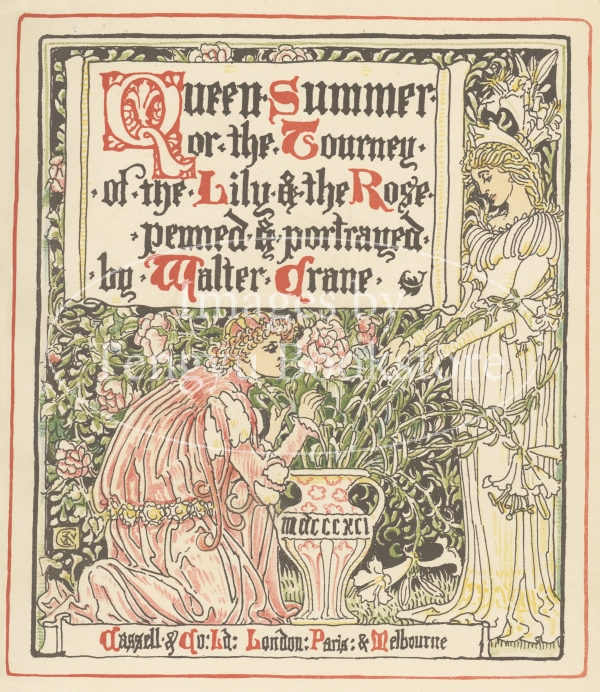 Queen · Summer ·
or · the · Tourney ·
· of · the · Lily · & · the · Rose ·
· penned · & · portrayed ·
· by · Walter · Crane ·
mdcccxci
Cassell · & · Co: Ld: London: Paris: & Melbourne
Images by
Tengu Bookstore